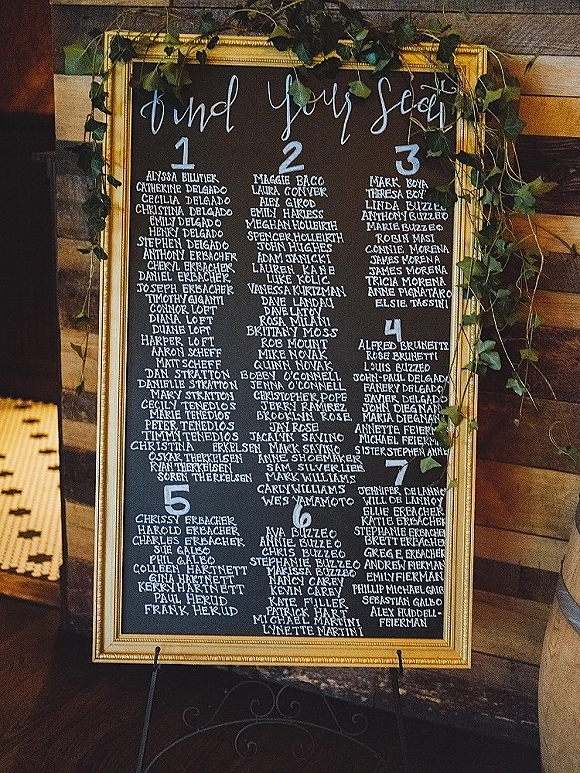 Find Your Seat
1
ALYSSA BILLITIER
CATHERINE DELGADO
CECILIA DELGADO
CHRISTINA DELGADO
EMILY DELGADO
HENRY DELGADO
STEPHEN DELGADO
ANTHONY ERBACHER
CHERYL ERBACHER
DANIEL ERBACHER
JOSEPH ERBACHER
TIMOTHY GIGANTI
CONNOR LOFT
DIANA LOFT
DUANE LOFT
HARPER LOFT
AARON SCHEFF
MATT SCHEFF
DAN STRATTON
DANIELLE STRATTON
MARY STRATTON
CECILY TENEDIOS
MARIE TENEDIOS
PETER TENEDIOS
TIMMY TENEDIOS
CHRISTINA ERKELSEN
OSKAR THERKELSEN
RYAN THERKELSEN
SOREN THERKELSEN
2
MAGGIE BACO
LAURA CONVER
ALEX GIROD
EMILY HARLESS
MEGHAN HOLLEIRTH
SPENCER HOLLEIRTH
JOHN HUGHES
ADAM JANICKI
LAUREN KANE
LUKE KOLIC
VANESSA KURTZMAN
DAVE LANDAU
DAVE LATOY
ROSA MILANI
BRITTANY MOSS
ROB MOUNT
MIKE NOVAK
QUINN NOVAK
BOBBY O'CONNELL
JENNA O'CONNELL
CHRISTOPHER POPE
JERRY RAMIREZ
BROOKLYN ROSE
JAY ROSE
JACALYN SAVINO
MARK SAVINO
ANNE SHOEMAKER
SAM SILVERLIER
MARK WILLIAMS
CARLY WILLIAMS
WES YAMAMOTO
3
MARK BOYA
THERESA BOY
LINDA BUZZEO
ANTHONY BUZZEO
MARIE BUZZEO
ROBIN MASI
CONNIE MORENA
JAMES MORENA
JAMES MORENA
TRICIA MORENA
ANNE PIGNATARO
ELSIE TASSINI
4
ALFRED BRUNETTI
ROSE BRUNETTI
LOUIS BUZZEO
JOHN-PAUL DELGADO
FANERY DELGADO
JAVIER DELGADO
JOHN DIEGNAN
MARIA DIEGNAN
ANNETTE FEIERM
MICHAEL FEIERM
SISTER STEPHEN ANNE
5
CHRISSY ERBACHER
HAROLD ERBACHER
CHARLES ERBACHER
SUE GALBO
PHIL GALBO
COLLEEN HARTNETT
GINA HARTNETT
KERRY HARTNETT
PAUL HERUD
FRANK HERUD
6
AVA BUZZEO
ANNIE BUZZEO
CHRIS BUZZEO
STEPHANIE BUZZEO
MARISSA BUZZEO
NANCY CAREY
KEVIN CAREY
KATE FULLER
PATRICK HART
MICHAEL MARTINI
LYNETTE MARTINI
7
JENNIFER DE LANNOY
WILL DE LANNOY
ELLIE ERBACHER
KATIE ERBACHER
STEPHANIE ERBACHER
BRETT ERBACHER
GREG E. ERBACHER
ANDREW FIERMAN
EMILY FIERMAN
PHILLIP MICHAEL GAIB
SEBASTIAN GALBO
ALEX HUDDELL-
FEIERMAN